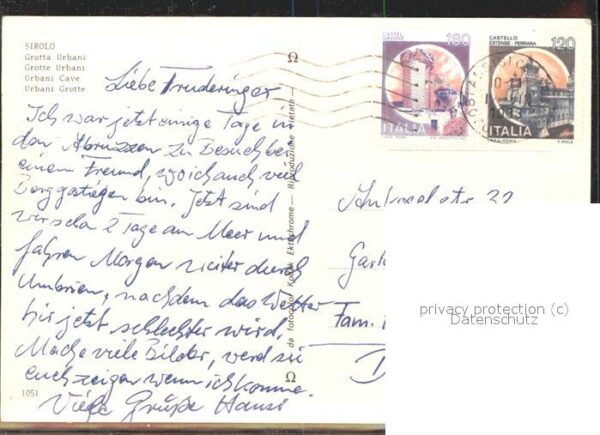 SIROLO
Grotta Urbani
Grotte Urbani
Urbani Cave
Urbani Grotte
Liebe Truderinger
Ich war jetzt einige Tage in
den Abruzzen zu Besuch bei
einem Freund, wo ich auch viel
Berggstiegen bin. Jetzt sind
wir schon 2 Tage am Meer und
fahren Morgen weiter durch
Umbrien, nachdem das Wetter
hir jetzt schlechter wird.
Mache viele Bilder, werd sie
euch zeigen wenn ich komme.
Viele Grüße Hansi
1051
da fotocolor Kodak Ektachrome — Riproduzione vietata
180
ITALIA
CASTELLO
ESTENSE - FERRARA
120
ITALIA
str. 32
Fam.
D
privacy protection (c)
Datenschutz